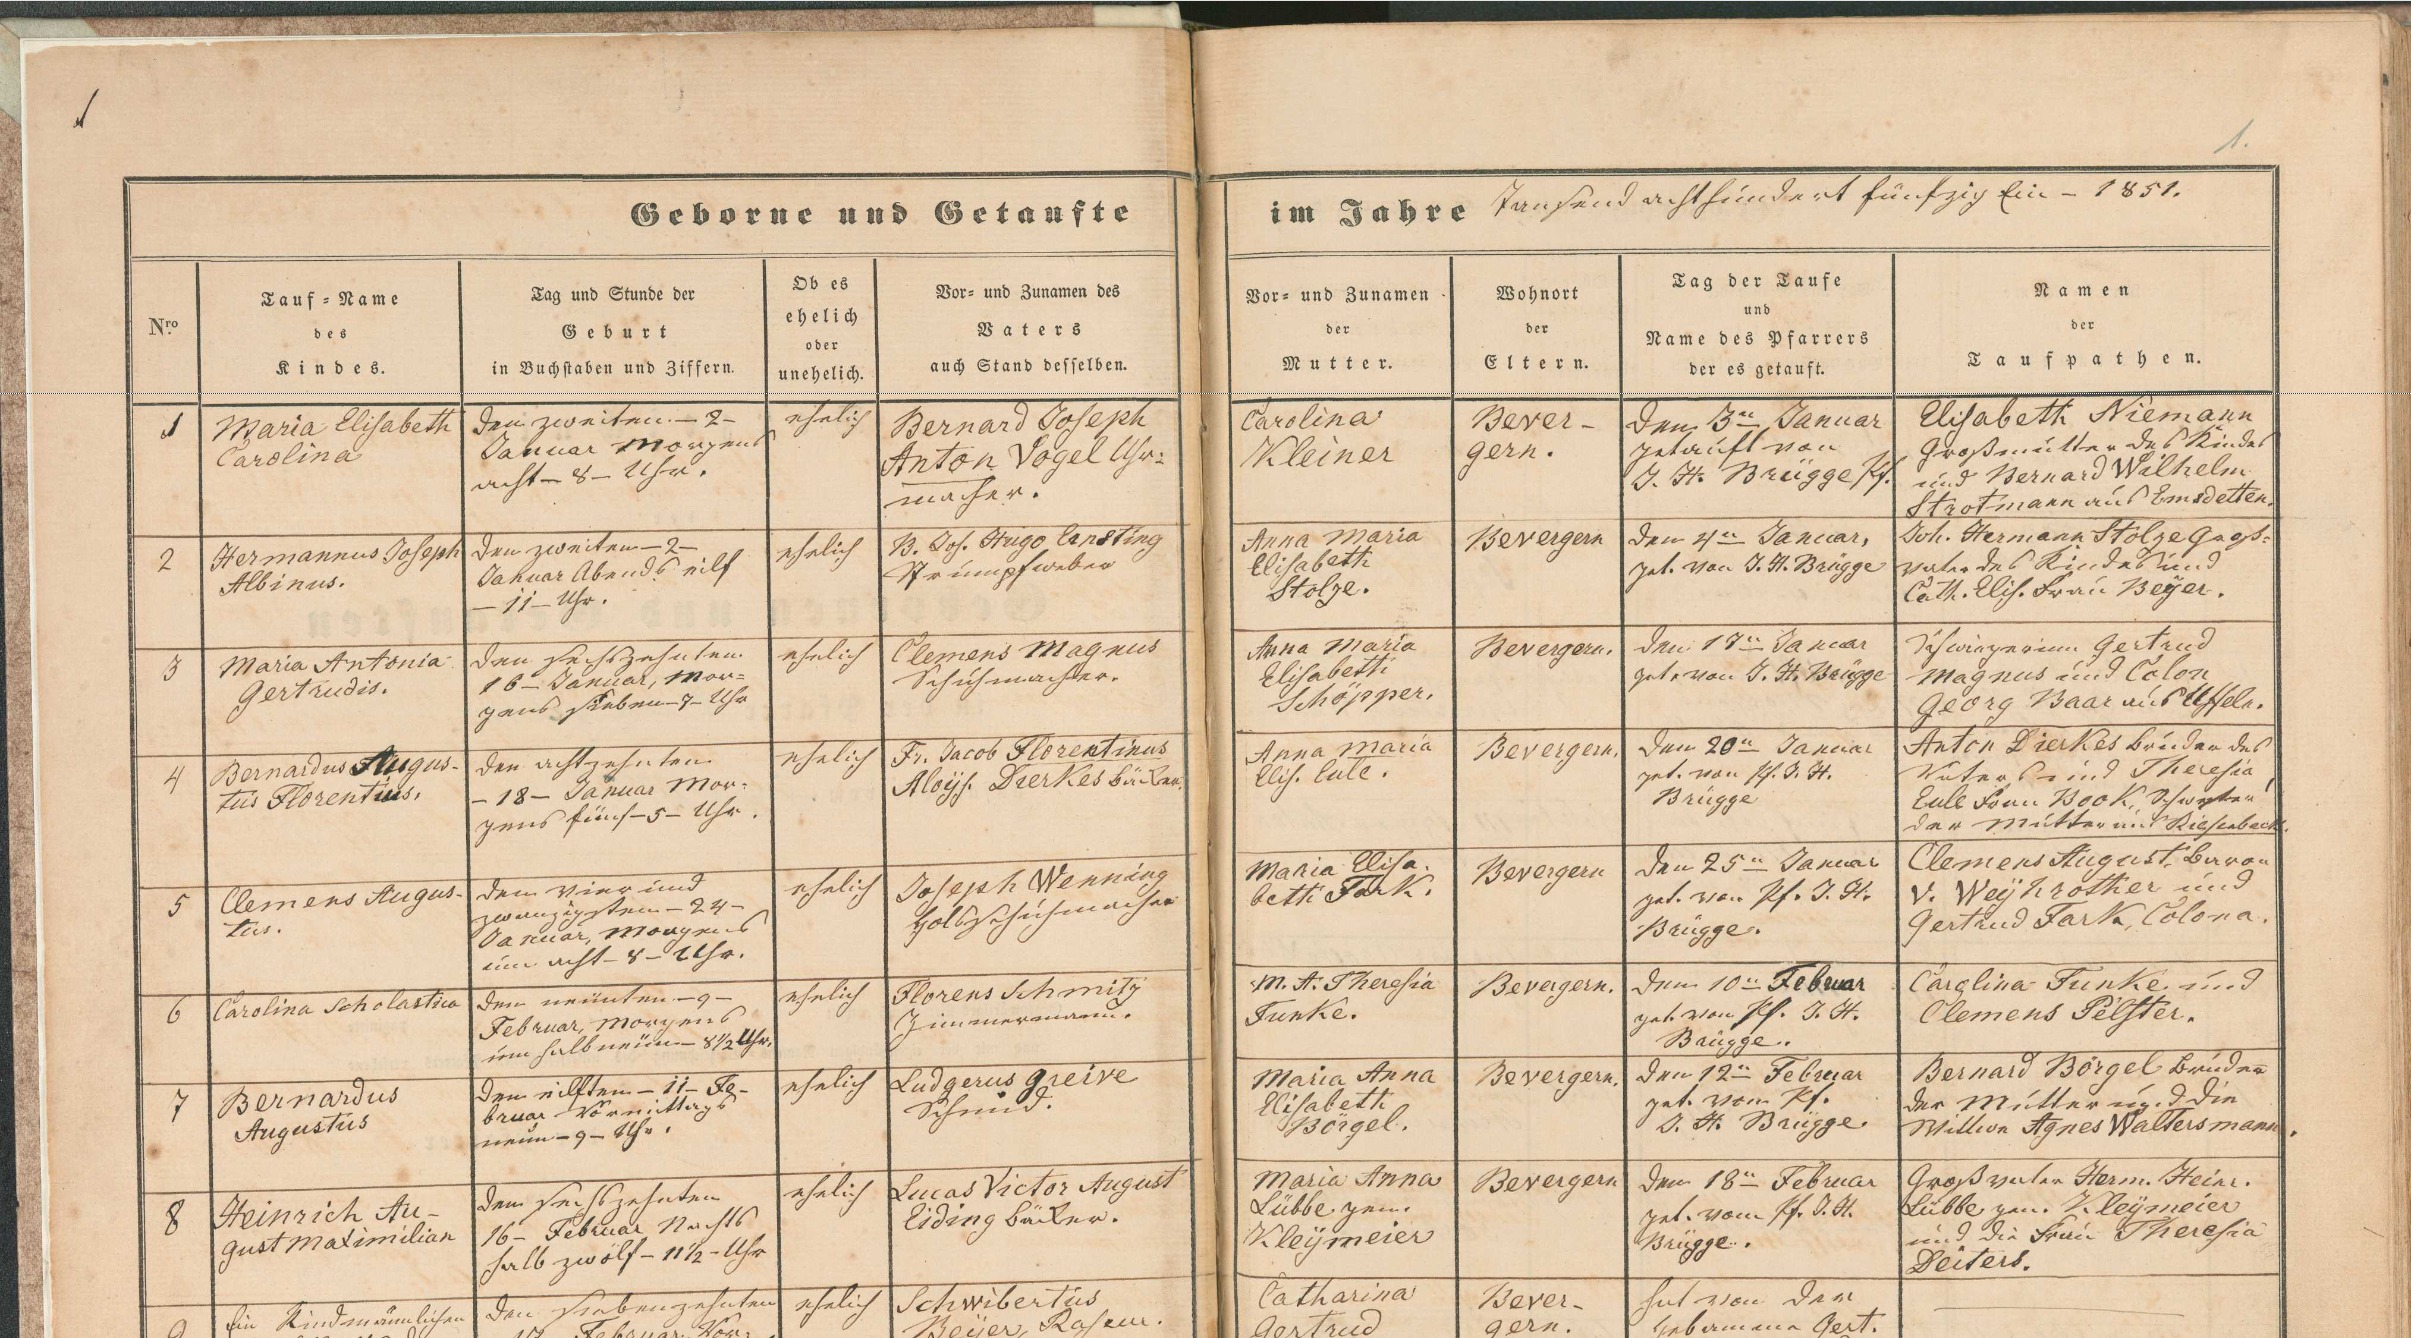 1.
Geborne und Getaufte im Jahre Tausend achthundert fünfzig Ein – 1851.
Nro
Tauf-Name
des
Kindes.
Tag und Stunde der
Geburt
in Buchstaben und Ziffern.
Ob es
ehelich
oder
unehelich.
Vor- und Zunamen des
Vaters
auch Stand desselben.
Vor- und Zunamen
der
Mutter.
Wohnort
der
Eltern.
Tag der Taufe
und
Name des Pfarrers
der es getauft.
Namen
der
Taufpathen.
1
Maria Elisabeth
Carolina
Den zweiten – 2 –
Januar Morgens
acht – 8 – Uhr.
ehelich
Bernard Joseph
Anton Vogel Uhr=
macher.
Carolina
Kleiner
Bever-
gern.
Den 3ten Januar
getauft von
J. H. Brügge Pf.
Elisabeth Niemann
Großmutter des Kindes
und Bernard Wilhelm
Strotmann aus Emsdetten.
2
Hermannus Joseph
Albinus.
Den zweiten – 2 –
Januar Abends eilf
– 11 – Uhr.
ehelich
B. Jos. Hugo Ernsting
Strumpfweber
Anna Maria
Elisabeth
Stolze.
Bevergern
Den 4ten Januar,
get. von J. H. Brügge
Joh. Hermann Stolze Groß=
vater des Kindes und
Cath. Elis. Frau Beÿer.
3
Maria Antonia
Gertrudis.
Den sechszehnten
16 – Januar, Mor=
gens sieben – 7 – Uhr
ehelich
Clemens Magnus
Schuhmacher.
Anna Maria
Elisabeth
Schöpper.
Bevergern.
Den 17ten Januar
get. von J. H. Brügge
Gertrud
Magnus und Colon
Georg Baar aus Uffeln.
4
Bernardus Augus-
tus Florentius.
Den achtzehnten
– 18 – Januar Mor-
gens fünf – 5 – Uhr.
ehelich
Fr. Jacob Florentinus
Aloÿs. Dierkes Bäcker.
Anna Maria
Elis. Eule.
Bevergern.
Den 20ten Januar
get. von Pf. J. H.
Brügge
Anton Dierkes Bruder des
Vaters und Theresia
Eule Frau Book, Schwester
der Mutter aus Riesenbeck.
5
Clemens Augus-
tus.
Den vier und
zwanzigsten – 24 –
Januar, Morgens
um acht – 8 – Uhr.
ehelich
Joseph Wenning
Holzschuhmacher
Maria Elisa-
beth Fark.
Bevergern
Den 25ten Januar
get. von Pf. J. H.
Brügge.
Clemens August, Baron
v. Weÿhrother und
Gertrud Fark, Colona.
6
Carolina Scholastica
Den neunten – 9 –
Februar, Morgens
um halb neun – 8½ Uhr.
ehelich
Florens Schmitz
Zimmermann.
M. A. Theresia
Funke.
Bevergern.
Den 10ten Februar
get. von Pf. J. H.
Brügge.
Carolina Funke und
Clemens Pelster.
7
Bernardus
Augustus
Den eilften – 11 – Fe-
bruar Vormittags
neun – 9 – Uhr.
ehelich
Ludgerus Greive
Schmid.
Maria Anna
Elisabeth
Börgel.
Bevergern.
Den 12ten Februar
get. vom Pf.
J. H. Brügge.
Bernard Börgel Bruder
der Mutter und die
Wittwe Agnes Waltersmann.
8
Heinrich Au-
gust Maximilian
Den sechszehnten
16 – Februar Nachts
halb zwölf – 11½ – Uhr
ehelich
Lucas Victor August
Eiding Bäcker.
Maria Anna
Lübbe gen.
Kleÿmeier
Bevergern
Den 18ten Februar
get. vom Pf. J. H.
Brügge.
Großvater Herm. Heinr.
Lübbe gen. Kleÿmeier
und die Frau Theresia
Deiters.
9
Ein Kind männlichen
Den siebenzehnten
17 Februar, Vor-
ehelich
Schwibertus
Beÿer,
Catharina
Gertrud
Bever-
gern.
hat von der
Hebamme Gert.